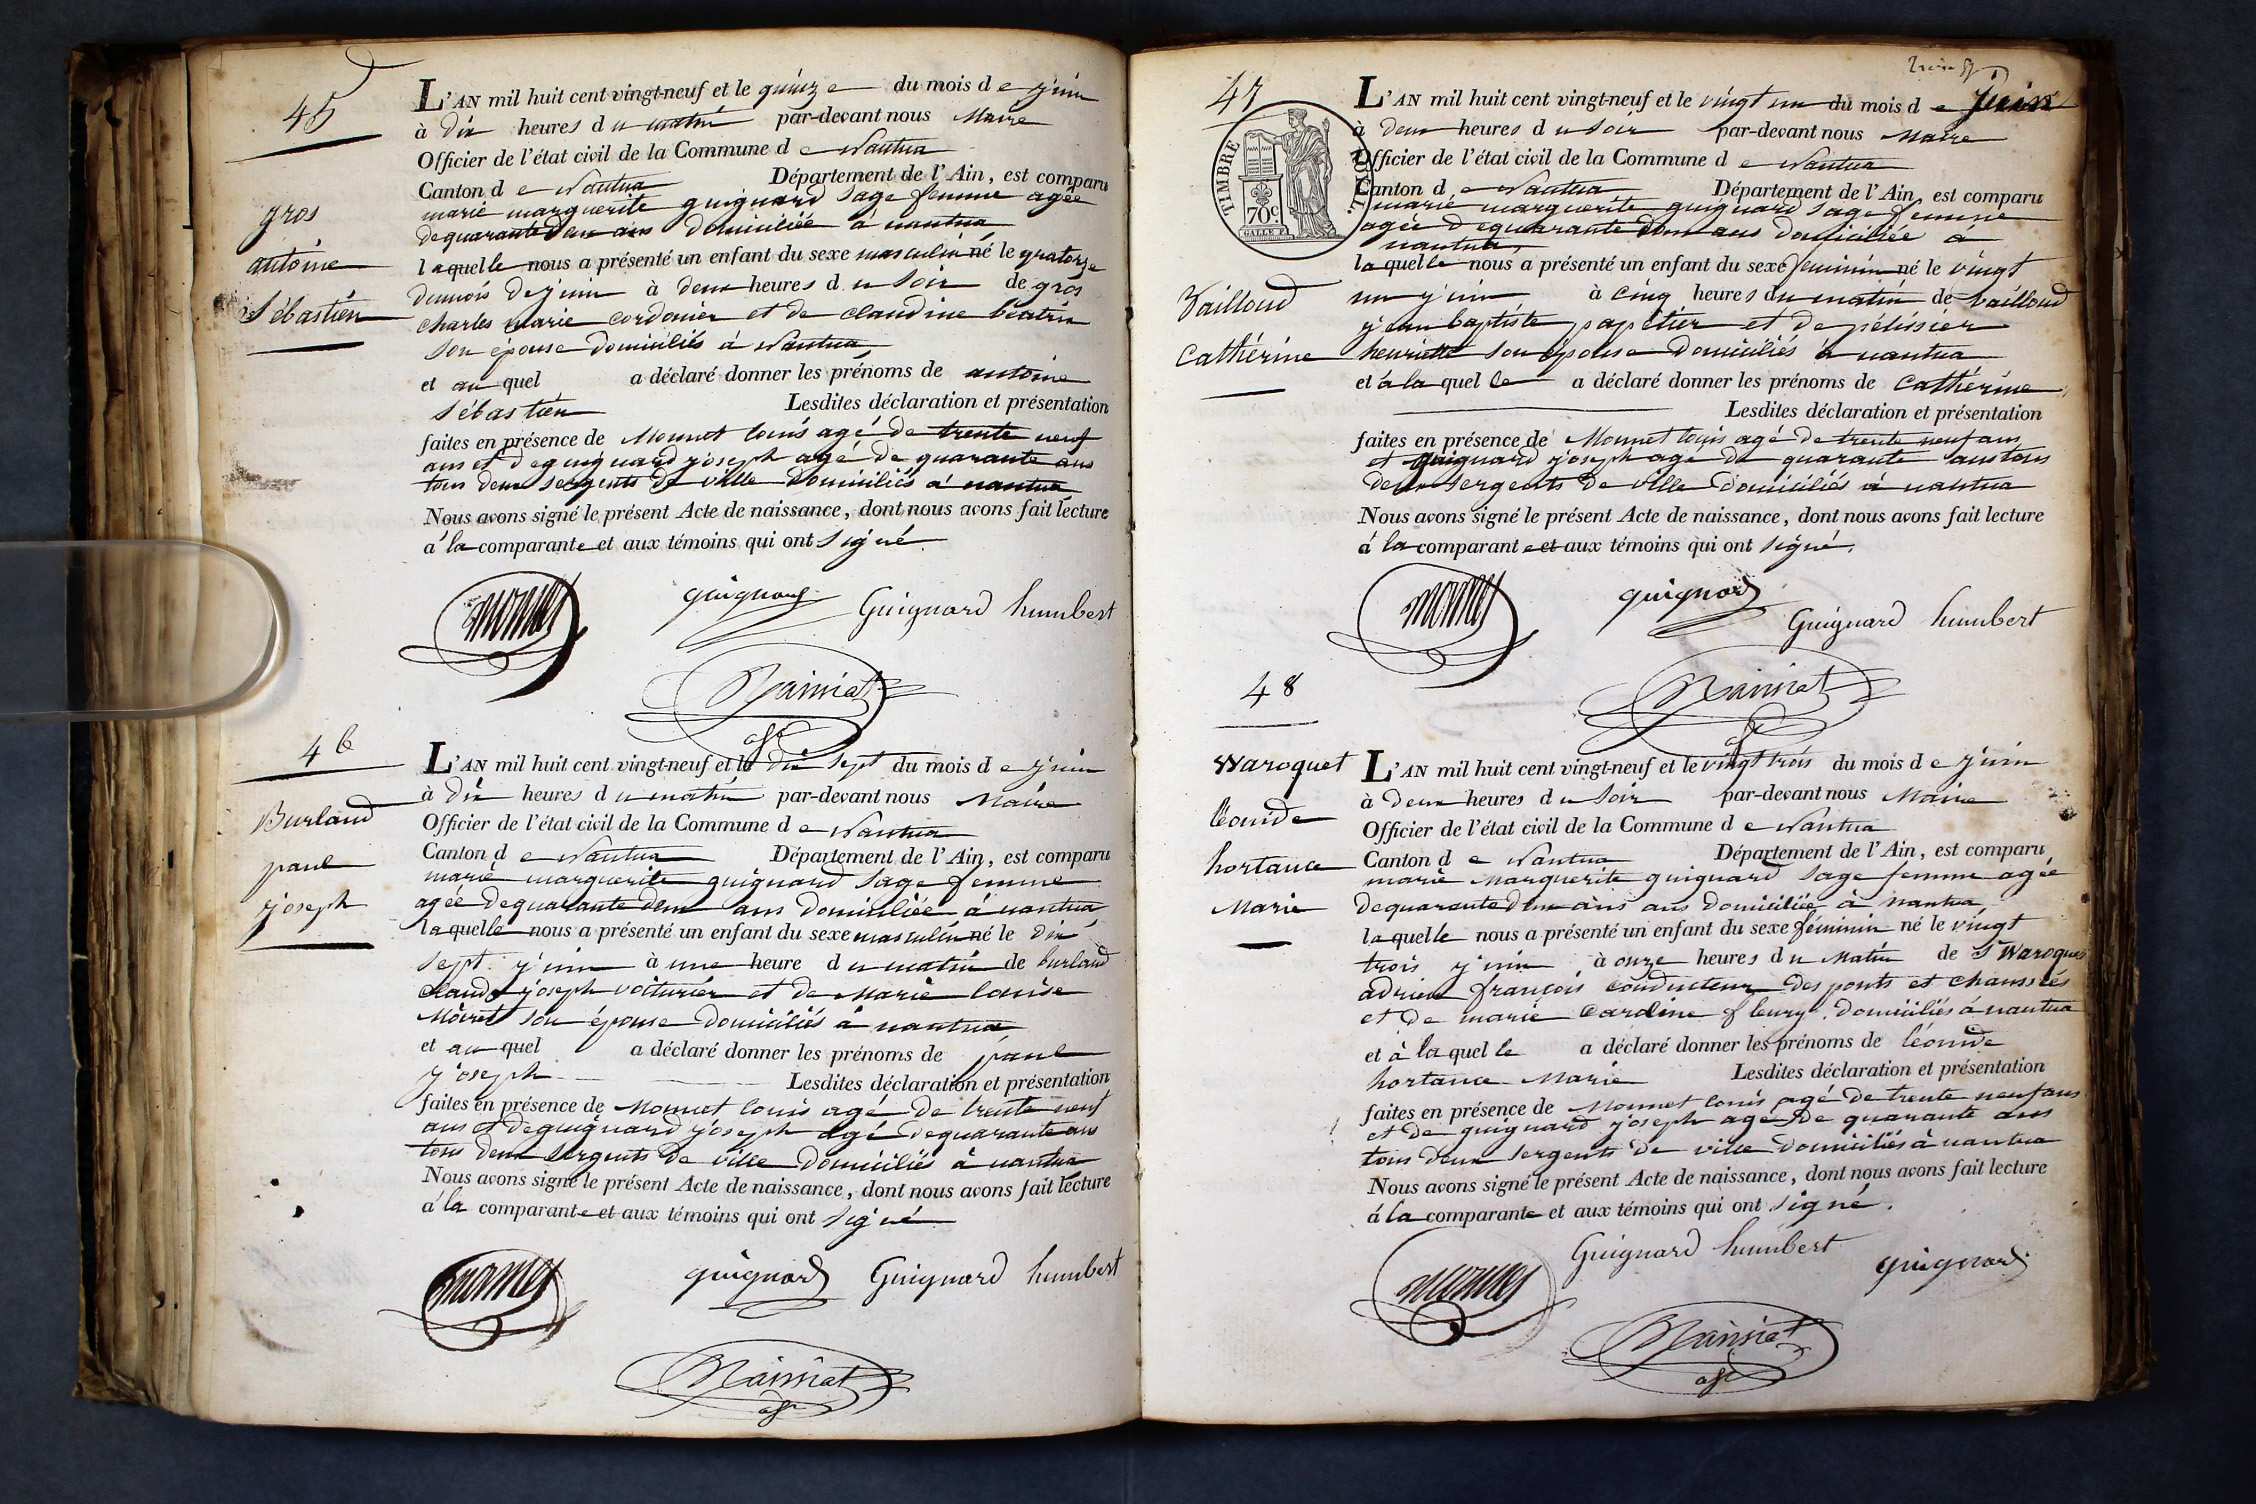 45
gros
antoine
Sébastien
L'AN mil huit cent vingt-neuf et le quinze du mois de juin
à dix heures du matin par-devant nous Maire
Officier de l'état civil de la Commune de Nantua
Canton de Nantua Département de l'Ain, est comparu
marie marguerite guignard sage femme agée
de quarante deux ans domiciliée à nantua
laquelle nous a présenté un enfant du sexe masculin né le quatorze
du mois de juin à deux heures du soir de gros
charles marie cordonier et de claudine béatrix
son épouse domiciliés à Nantua
et au quel a déclaré donner les prénoms de antoine
sébastien Lesdites déclaration et présentation
faites en présence de Monnet louis agé de trente neuf
ans et de guignard joseph agé de quarante ans
tous deux sergents de ville domiciliés à nantua
Nous avons signé le présent Acte de naissance, dont nous avons fait lecture
à la comparante et aux témoins qui ont signé
monnet guignard Guignard humbert
46
Burland
paul
joseph
L'AN mil huit cent vingt-neuf et le dix sept du mois de juin
à dix heures du matin par-devant nous Maire
Officier de l'état civil de la Commune de Nantua
Canton de Nantua Département de l'Ain, est comparu
marie marguerite guignard sage femme
agée de quarante deux ans domiciliée à nantua
laquelle nous a présenté un enfant du sexe masculin né le dix
sept juin à une heure du matin de burland
claude joseph voiturier et de Marie louise
Moiret son épouse domiciliés à nantua
et au quel a déclaré donner les prénoms de paul
joseph Lesdites déclaration et présentation
faites en présence de Monnet louis agé de trente neuf
ans et de guignard joseph agé de quarante ans
tous deux sergents de ville domiciliés à nantua
Nous avons signé le présent Acte de naissance, dont nous avons fait lecture
à la comparante et aux témoins qui ont signé
monnet guignard Guignard humbert
47
TIMBRE ROYAL.
70c.
Vailloud
Cathérine
L'AN mil huit cent vingt-neuf et le vingt un du mois de Juin
à deux heures du soir par-devant nous Maire
Officier de l'état civil de la Commune de Nantua
Canton de Nantua Département de l'Ain, est comparu
marie marguerite guignard sage femme
agée de quarante deux ans domiciliée à
nantua,
laquelle nous a présenté un enfant du sexe féminin né le vingt
un juin à cinq heures du matin de vailloud
jean baptiste papetier et de pélissier
henriette son épouse domiciliés à nantua
et à la quelle a déclaré donner les prénoms de Cathérine
Lesdites déclaration et présentation
faites en présence de Monnet louis agé de trente neuf ans
et guignard joseph agé de quarante ans tous
deux sergents de ville domiciliés à nantua
Nous avons signé le présent Acte de naissance, dont nous avons fait lecture
à la comparante et aux témoins qui ont signé.
monnet guignard
Guignard humbert
48
Waroquet
léonide
hortance
Marie
L'AN mil huit cent vingt-neuf et le vingt trois du mois de juin
à deux heures du soir par-devant nous Maire
Officier de l'état civil de la Commune de Nantua
Canton de Nantua Département de l'Ain, est comparu
marie Marguerite guignard sage femme agée
de quarante deux ans ans domiciliée à nantua
laquelle nous a présenté un enfant du sexe féminin né le vingt
trois juin à onze heures du Matin de Waroquet
adrien françois conducteur des ponts et chaussées
et de marie Caroline fleury, domiciliés à nantua
et à la quelle a déclaré donner les prénoms de léonide
hortance Marie Lesdites déclaration et présentation
faites en présence de Monnet louis agé de trente neuf ans
et de guignard joseph agé de quarante ans
tous deux sergents de ville domiciliés à nantua
Nous avons signé le présent Acte de naissance, dont nous avons fait lecture
à la comparante et aux témoins qui ont signé.
Guignard humbert
monnet guignard